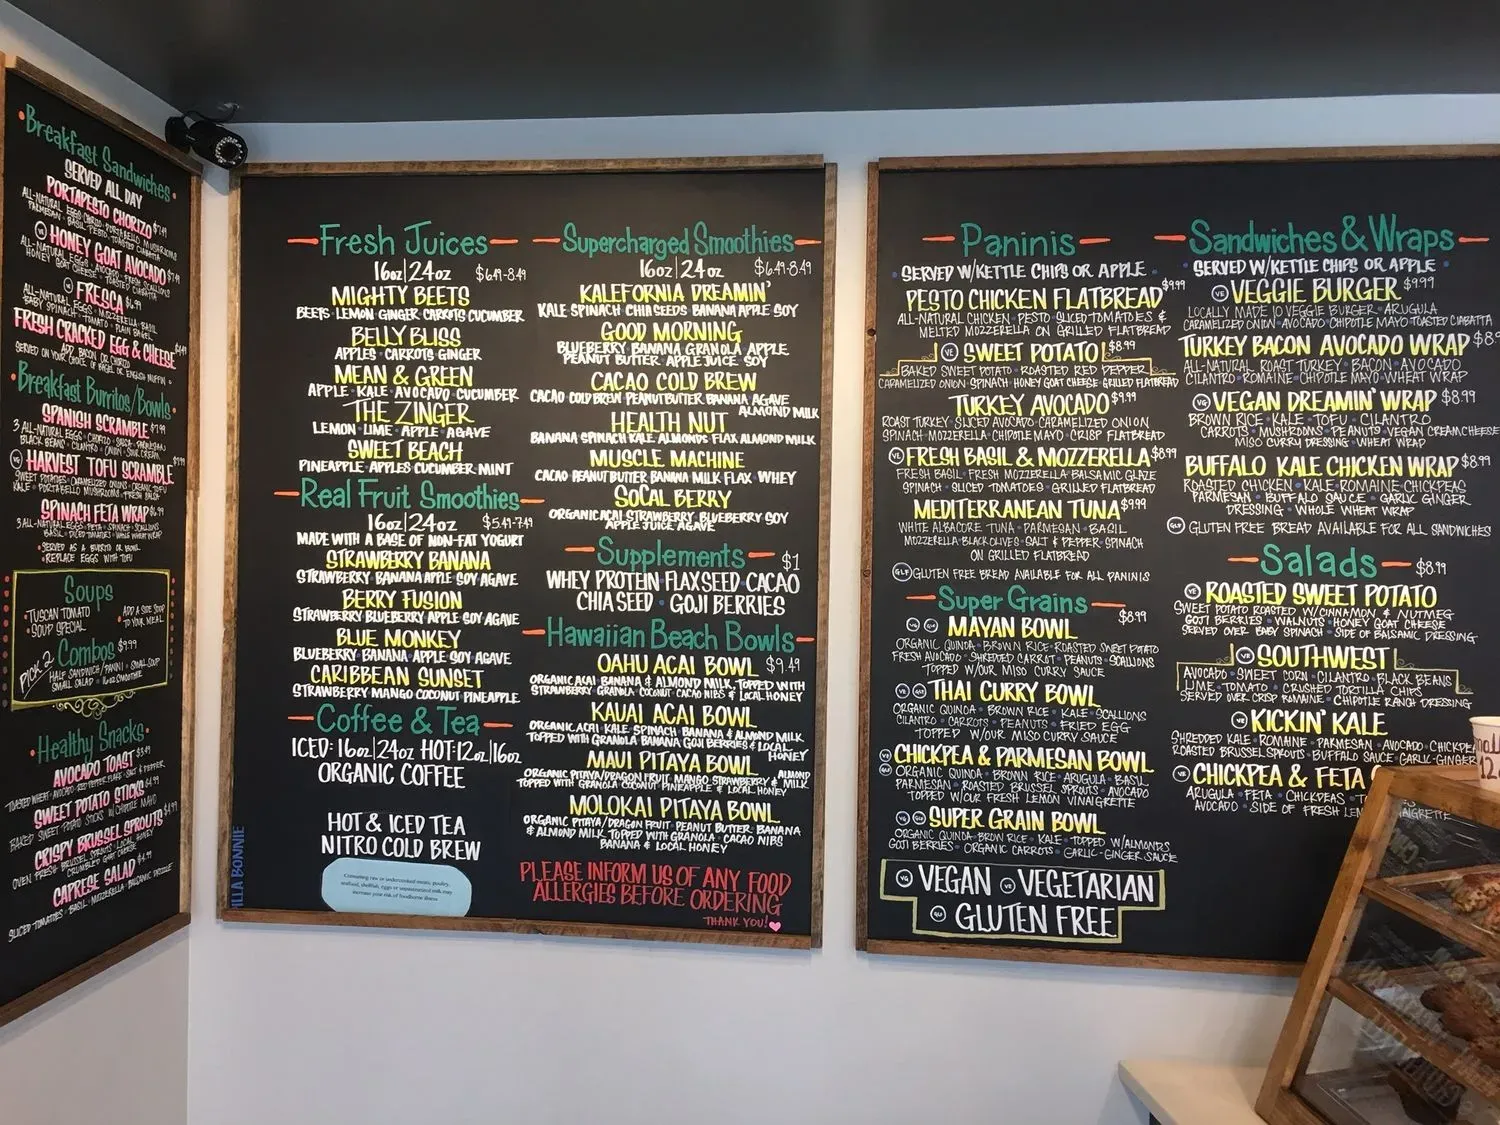 Breakfast Sandwiches
SERVED ALL DAY
PORTAPESTO CHORIZO $7.49
ALL-NATURAL EGGS · CHORIZO · PORTABELLO MUSHROOMS
PARMESAN · BASIL · PESTO · TOASTED CIABATTA
HONEY GOAT AVOCADO $7.49
ALL-NATURAL EGGS · AVOCADO · FRESH SCALLIONS
HONEY GOAT CHEESE · TOASTED CIABATTA
FRESCA $6.99
ALL-NATURAL EGGS · MOZZERELLA · BASIL
BABY SPINACH · TOMATO · PLAIN BAGEL
FRESH CRACKED EGG & CHEESE
ADD BACON OR CHORIZO
SERVED ON YOUR CHOICE OF BAGEL OR ENGLISH MUFFIN
Breakfast Burritos/Bowls
SPANISH SCRAMBLE $7.99
3 ALL-NATURAL EGGS · CHORIZO · SALSA
BLACK BEANS · CILANTRO · ONION · SOUR CREAM
VG HARVEST TOFU SCRAMBLE
SWEET POTATOES · CARAMELIZED ONIONS · ORGANIC TOFU
KALE · PORTABELLO MUSHROOMS · FRESH SALSA
SPINACH FETA WRAP $6.99
3 ALL-NATURAL EGGS · FETA · SPINACH · SCALLIONS
BASIL · DICED TOMATOES · WHOLE WHEAT WRAP
· SERVED AS A BURRITO OR BOWL
· REPLACE EGGS WITH TOFU
Soups
· TUSCAN TOMATO
· SOUP SPECIAL
· ADD A SIDE SOUP
TO YOUR MEAL
Combos $9.99
PICK 2
HALF SANDWICH/PANINI · SMALL SOUP
SMALL SALAD · 16oz SMOOTHIE
Healthy Snacks
AVOCADO TOAST $3.49
TOASTED WHEAT · AVOCADO · RED PEPPER FLAKE · SALT & PEPPER
SWEET POTATO STICKS $4.99
BAKED SWEET POTATO STICKS W/CHIPOTLE MAYO
CRISPY BRUSSEL SPROUTS $4.99
OVEN FRESH BRUSSEL SPROUTS · LOCAL HONEY
CRUMBLED GOAT CHEESE
CAPRESE SALAD $4.99
SLICED TOMATOES · BASIL · MOZZERELLA · BALSAMIC DRIZZLE
Fresh Juices
16oz|24oz $6.49-8.49
MIGHTY BEETS
BEETS · LEMON · GINGER · CARROTS · CUCUMBER
BELLY BLISS
APPLES · CARROTS · GINGER
MEAN & GREEN
APPLE · KALE · AVOCADO · CUCUMBER
THE ZINGER
LEMON · LIME · APPLE · AGAVE
SWEET BEACH
PINEAPPLE · APPLES · CUCUMBER · MINT
Real Fruit Smoothies
16oz|24oz $5.49-7.49
MADE WITH A BASE OF NON-FAT YOGURT
STRAWBERRY BANANA
STRAWBERRY · BANANA · APPLE · SOY · AGAVE
BERRY FUSION
STRAWBERRY · BLUEBERRY · APPLE · SOY · AGAVE
BLUE MONKEY
BLUEBERRY · BANANA · APPLE · SOY · AGAVE
CARIBBEAN SUNSET
STRAWBERRY · MANGO · COCONUT · PINEAPPLE
Coffee & Tea
ICED: 16oz|24oz HOT: 12oz|16oz
ORGANIC COFFEE
HOT & ICED TEA
NITRO COLD BREW
Consuming raw or undercooked meats, poultry,
seafood, shellfish, eggs or unpasteurized milk may
increase your risk of foodborne illness
ILLA BONNIE
Supercharged Smoothies
16oz|24oz $6.49-8.49
KALEFORNIA DREAMIN'
KALE · SPINACH · CHIA SEEDS · BANANA · APPLE · SOY
GOOD MORNING
BLUEBERRY · BANANA · GRANOLA · APPLE
PEANUT BUTTER · APPLE JUICE · SOY
CACAO COLD BREW
CACAO · COLD BREW · PEANUT BUTTER · BANANA · AGAVE
ALMOND MILK
HEALTH NUT
BANANA · SPINACH · KALE · ALMONDS · FLAX · ALMOND MILK
MUSCLE MACHINE
CACAO · PEANUT BUTTER · BANANA · MILK · FLAX · WHEY
SOCAL BERRY
ORGANIC ACAI · STRAWBERRY · BLUEBERRY · SOY
APPLE JUICE · AGAVE
Supplements $1
WHEY PROTEIN · FLAXSEED · CACAO
CHIA SEED · GOJI BERRIES
Hawaiian Beach Bowls
OAHU ACAI BOWL $9.49
ORGANIC ACAI · BANANA & ALMOND MILK, TOPPED WITH
STRAWBERRY · GRANOLA · COCONUT · CACAO NIBS & LOCAL HONEY
KAUAI ACAI BOWL
ORGANIC ACAI · KALE · SPINACH · BANANA & ALMOND MILK
TOPPED WITH GRANOLA · BANANA · GOJI BERRIES & LOCAL
HONEY
MAUI PITAYA BOWL
ORGANIC PITAYA/DRAGON FRUIT · MANGO · STRAWBERRY & ALMOND MILK
TOPPED WITH GRANOLA · COCONUT · PINEAPPLE & LOCAL HONEY
MOLOKAI PITAYA BOWL
ORGANIC PITAYA/DRAGON FRUIT · PEANUT BUTTER · BANANA
& ALMOND MILK TOPPED WITH GRANOLA · CACAO NIBS
BANANA & LOCAL HONEY
PLEASE INFORM US OF ANY FOOD
ALLERGIES BEFORE ORDERING
THANK YOU!
Paninis
· SERVED W/KETTLE CHIPS OR APPLE ·
PESTO CHICKEN FLATBREAD $9.99
ALL-NATURAL CHICKEN · PESTO · SLICED TOMATOES &
MELTED MOZZERELLA ON GRILLED FLATBREAD
VE SWEET POTATO $8.99
BAKED SWEET POTATO · ROASTED RED PEPPER
CARAMELIZED ONION · SPINACH · HONEY GOAT CHEESE · GRILLED FLATBREAD
TURKEY AVOCADO $9.99
ROAST TURKEY · SLICED AVOCADO · CARAMELIZED ONION
SPINACH · MOZZERELLA · CHIPOTLE MAYO · CRISP FLATBREAD
VE FRESH BASIL & MOZZERELLA $8.99
FRESH BASIL · FRESH MOZZERELLA · BALSAMIC GLAZE
SPINACH · SLICED TOMATOES · GRILLED FLATBREAD
MEDITERRANEAN TUNA $9.99
WHITE ALBACORE TUNA · PARMESAN · BASIL
MOZZERELLA · BLACK OLIVES · SALT & PEPPER · SPINACH
ON GRILLED FLATBREAD
GLF GLUTEN FREE BREAD AVAILABLE FOR ALL PANINIS
Super Grains $8.99
MAYAN BOWL
ORGANIC QUINOA · BROWN RICE · ROASTED SWEET POTATO
FRESH AVOCADO · SHREDDED CARROT · PEANUTS · SCALLIONS
TOPPED W/OUR MISO CURRY SAUCE
THAI CURRY BOWL
ORGANIC QUINOA · BROWN RICE · KALE · SCALLIONS
CILANTRO · CARROTS · PEANUTS · FRIED EGG
TOPPED W/OUR MISO CURRY SAUCE
CHICKPEA & PARMESAN BOWL
ORGANIC QUINOA · BROWN RICE · ARUGULA · BASIL
PARMESAN · ROASTED BRUSSEL SPROUTS · AVOCADO
TOPPED W/OUR FRESH LEMON VINAIGRETTE
SUPER GRAIN BOWL
ORGANIC QUINOA · BROWN RICE · KALE · TOPPED W/ALMONDS
GOJI BERRIES · ORGANIC CARROTS · GARLIC-GINGER SAUCE
VG VEGAN VE VEGETARIAN
GLF GLUTEN FREE
Sandwiches & Wraps
SERVED W/KETTLE CHIPS OR APPLE ·
VE VEGGIE BURGER $9.99
LOCALLY MADE VEGGIE BURGER · ARUGULA
CARAMELIZED ONION · AVOCADO · CHIPOTLE MAYO · TOASTED CIABATTA
TURKEY BACON AVOCADO WRAP $8.9
ALL-NATURAL ROAST TURKEY · BACON · AVOCADO
CILANTRO · ROMAINE · CHIPOTLE MAYO · WHEAT WRAP
VG VEGAN DREAMIN' WRAP $8.99
BROWN RICE · KALE · TOFU · CILANTRO
CARROTS · MUSHROOMS · PEANUTS · VEGAN CREAM CHEESE
MISO CURRY DRESSING · WHEAT WRAP
BUFFALO KALE CHICKEN WRAP $8.99
ROASTED CHICKEN · KALE · ROMAINE · CHICKPEAS
PARMESAN · BUFFALO SAUCE · GARLIC GINGER
DRESSING · WHOLE WHEAT WRAP
GLF GLUTEN FREE BREAD AVAILABLE FOR ALL SANDWICHES
Salads $8.99
VE ROASTED SWEET POTATO
SWEET POTATO ROASTED W/CINNAMON & NUTMEG
GOJI BERRIES · WALNUTS · HONEY GOAT CHEESE
SERVED OVER BABY SPINACH · SIDE OF BALSAMIC DRESSING
VE SOUTHWEST
AVOCADO · SWEET CORN · CILANTRO · BLACK BEANS
LIME · TOMATO · CRUSHED TORTILLA CHIPS
SERVED OVER CRISP ROMAINE · CHIPOTLE RANCH DRESSING
VE KICKIN' KALE
SHREDDED KALE · ROMAINE · PARMESAN · AVOCADO · CHICKPE
ROASTED BRUSSEL SPROUTS · BUFFALO SAUCE · GARLIC-GINGER
VE CHICKPEA & FETA
ARUGULA · FETA · CHICKPEAS · T
AVOCADO · SIDE OF FRESH LEM
AIGRETTE